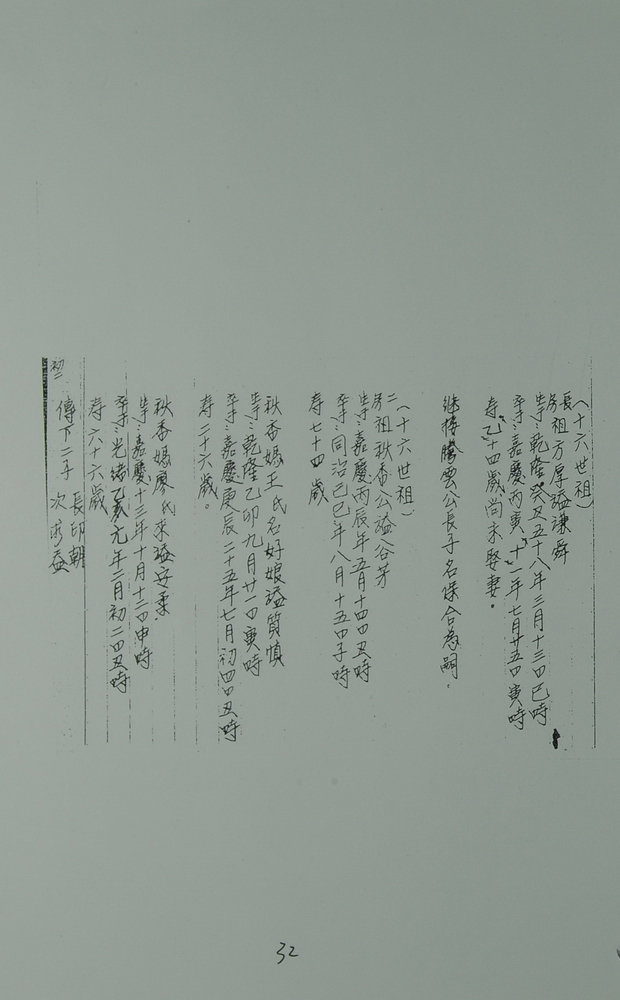 (十六世祖)
長房祖方厚謚謙舜
生:乾隆癸丑五十八年三月十三日巳時
卒:嘉慶丙寅十一年七月廿五日寅時
寿乙十四歲尚未娶妻。
继接騰雲公長子名保合為嗣.
(十六世祖)
二房祖秋香公謚谷芳
生:嘉慶丙辰年五月十四日丑時
卒:同治己巳年八月十五日子時
寿七十四歲
秋香媽王氏名好娘謚質慎
生:乾隆乙卯九月廿一日寅時
卒:嘉慶庚辰二十五年七月初四日丑時
寿二十六歲。
秋香媽廖氏来謚安柔
生:嘉慶十三年十月十三日申時
卒:光緒乙亥元年二月初二日丑時
寿六十六歲
傳下二子 長印朝
次
32